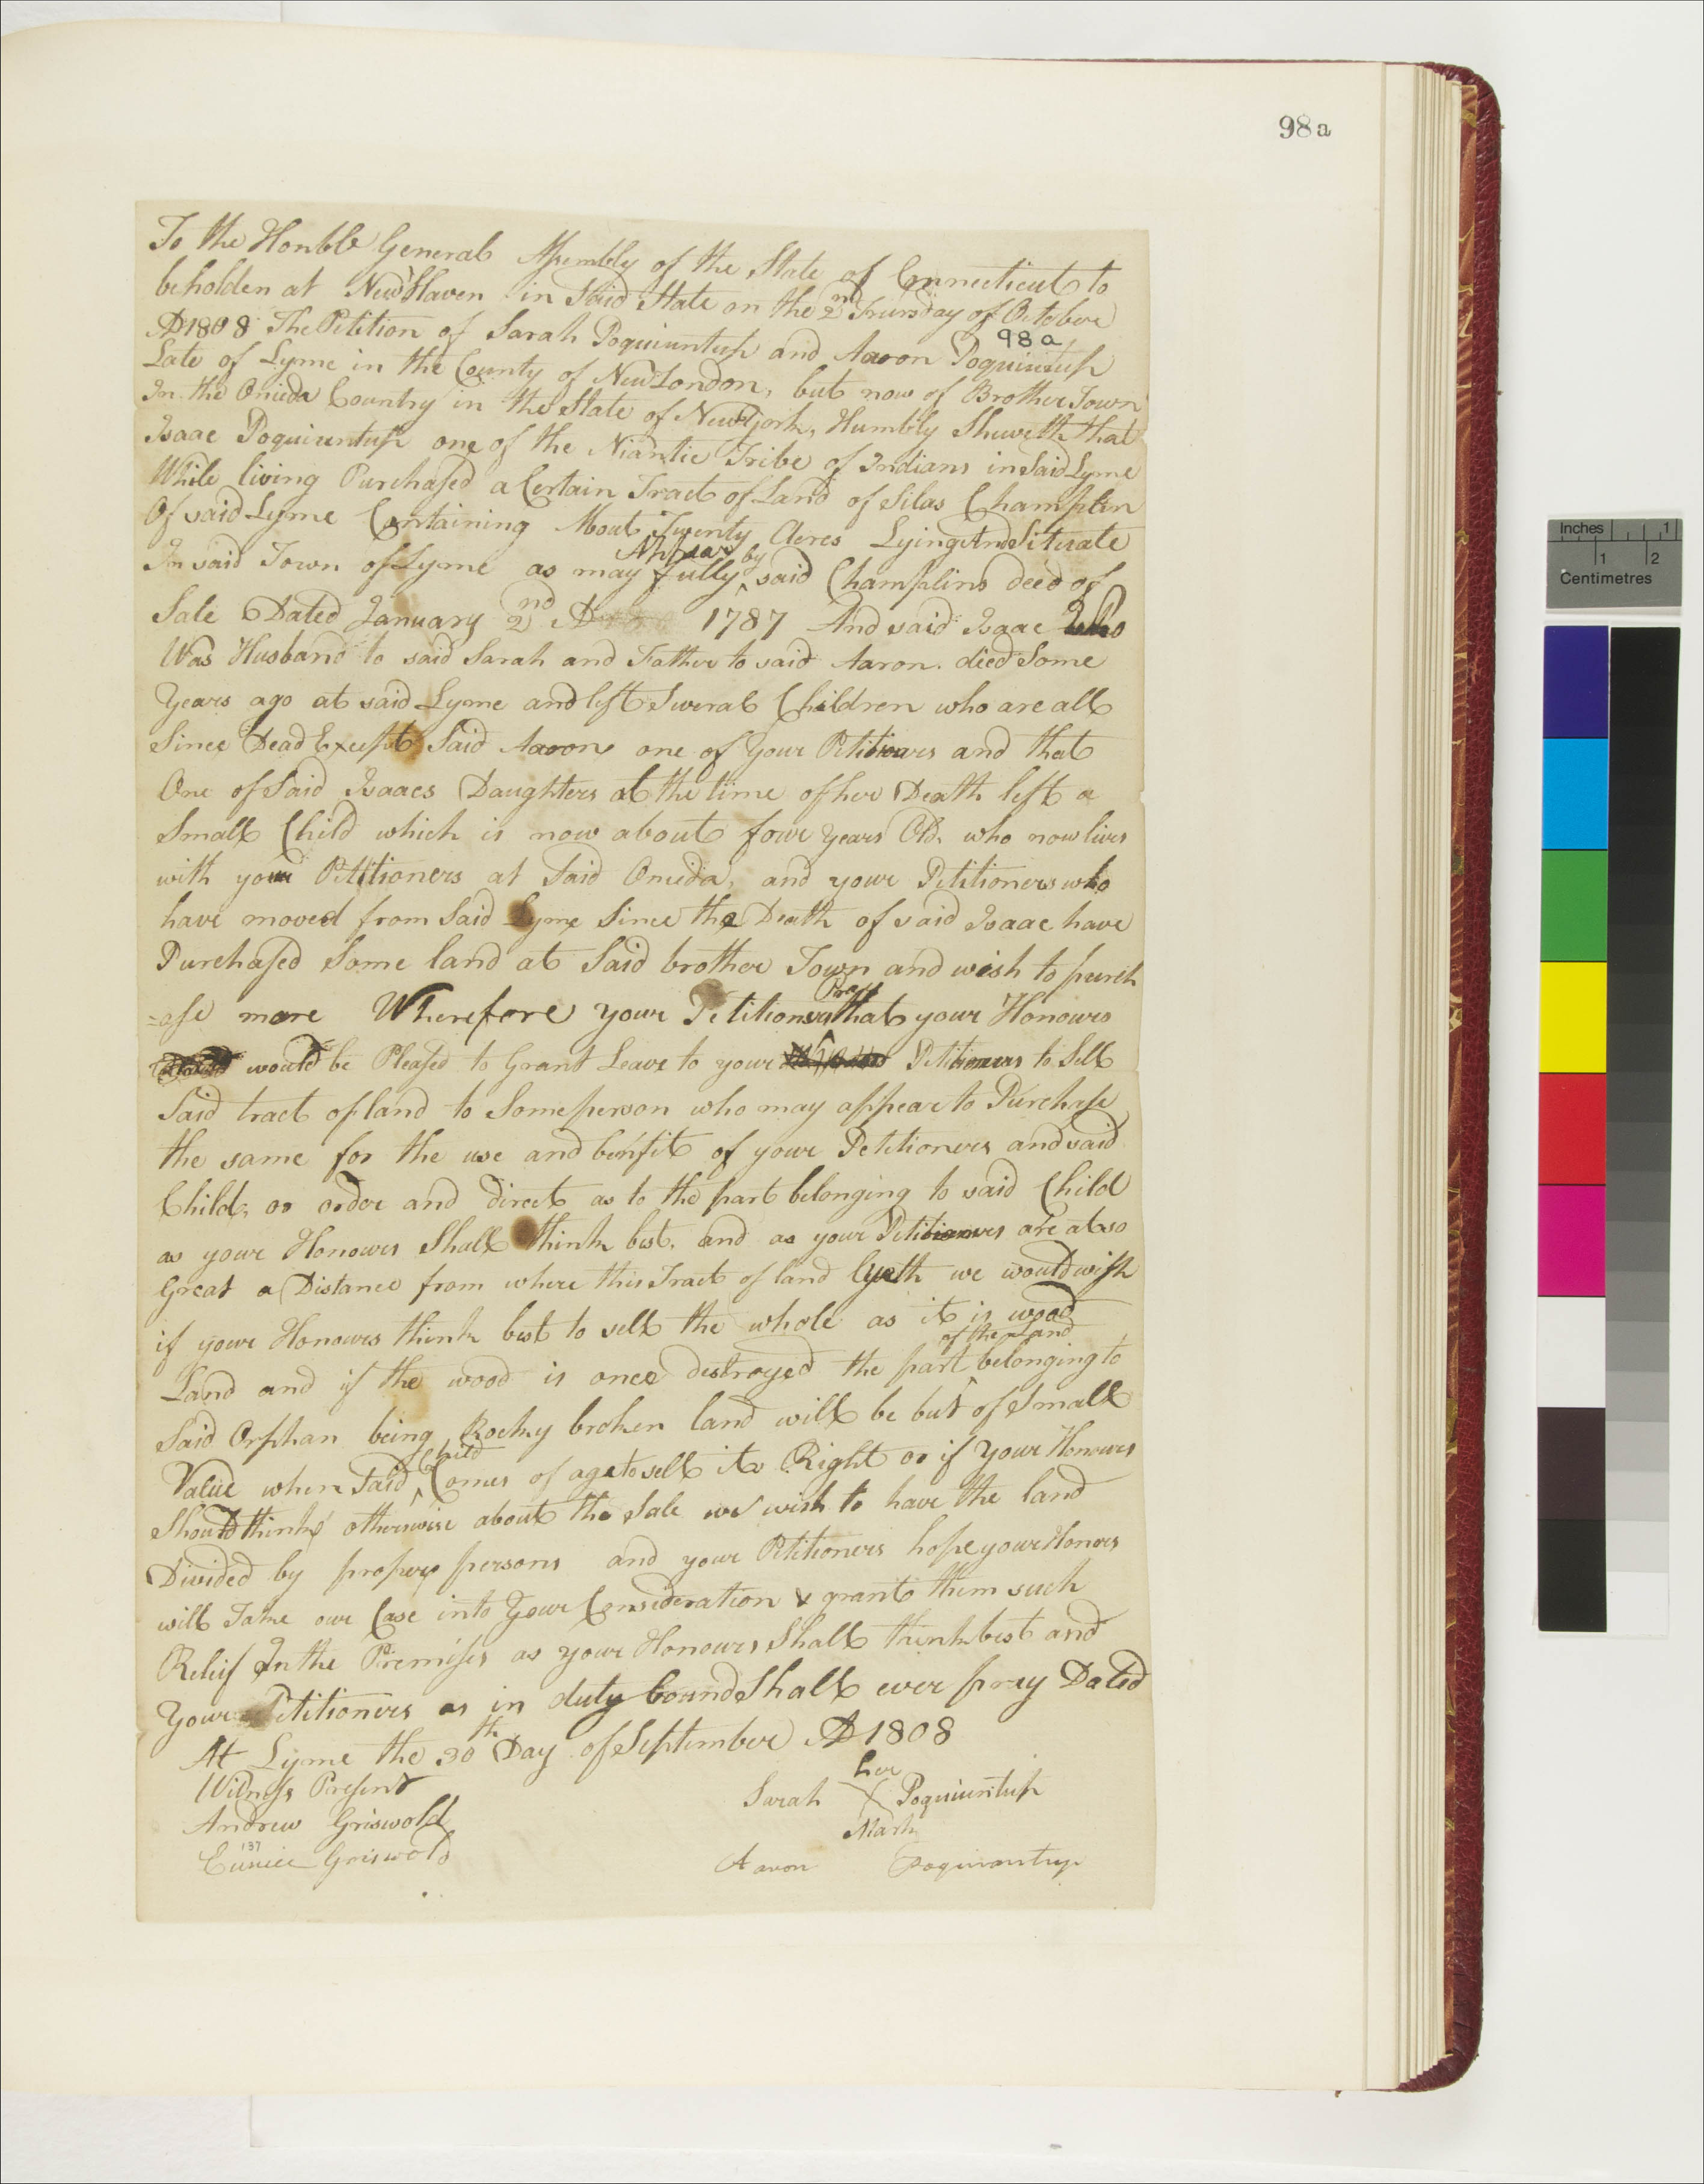 98a
To the Honble General Assembly of the State of Connecticut to
beholden at New Haven in Said State on the 2nd Thursday of October
AD 1808 The Petition of Sarah Poquiuntup and Aaron Poquiuntup
98a
Late of Lyme in the County of New London, but now of Brother Town
In the Oneida Country in the State of New York, Humbly Sheweth that
Isaac Poquiuntup one of the Niantic Tribe of Indians in Said Lyme
While living Purchased a Certain Tract of Land of Silas Champlin
Of said Lyme Containing About Twenty Acres Lying And Situate
In said Town of Lyme as may Appear fully by said Champlins deed of
Sale Dated January 2nd AD 1787 And said Isaac Who
Was Husband to said Sarah and Father to said Aaron. died Some
Years ago at said Lyme and left Several Children who are all
Since Dead Except Said Aaron one of Your Petitioners and that
One of Said Isaacs Daughters at the time of her Death left a
Small Child which is now about four years Old, who now lives
with your Petitioners at Said Oneida, and your Petitioners who
have moved from Said Lyme Since the Death of said Isaac have
Purchased Some land at Said brother Town and wish to purch
=ase more Wherefore your Petitioners Pray that your Honours
would be Pleased to Grant Leave to your Petitioners to Sell
Said tract of land to Some person who may appear to Purchase
the same for the use and benfit of your Petitioners and said
Child, or order and direct as to the part belonging to said Child
as your Honours Shall think best. and as your Petitioners are at so
Great a Distance from where this Tract of land lyeth we would wish
if your Honours think best to sell the whole as it is wood
Land and if the wood is once destroyed the part of the Land belonging to
Said Orphan being Rocky broken land will be but of Small
Value when Said Child Comes of age to sell its Right or if Your Honours
Should think otherwise about the Sale we wish to have the land
Divided by proper persons and your Petitioners hope your Honors
will Take our Case into Your Consideration & grant them such
Relief In the Premises as your Honours Shall think best and
Your Petitioners as in duty bound Shall ever pray Dated
At Lyme the 30th Day of September AD 1808
Witness Present
Andrew Griswold
137
Eunice Griswold
Sarah her X Mark Poquiuntup
Aaron Poquiantup
Inches 1
1 2
Centimetres